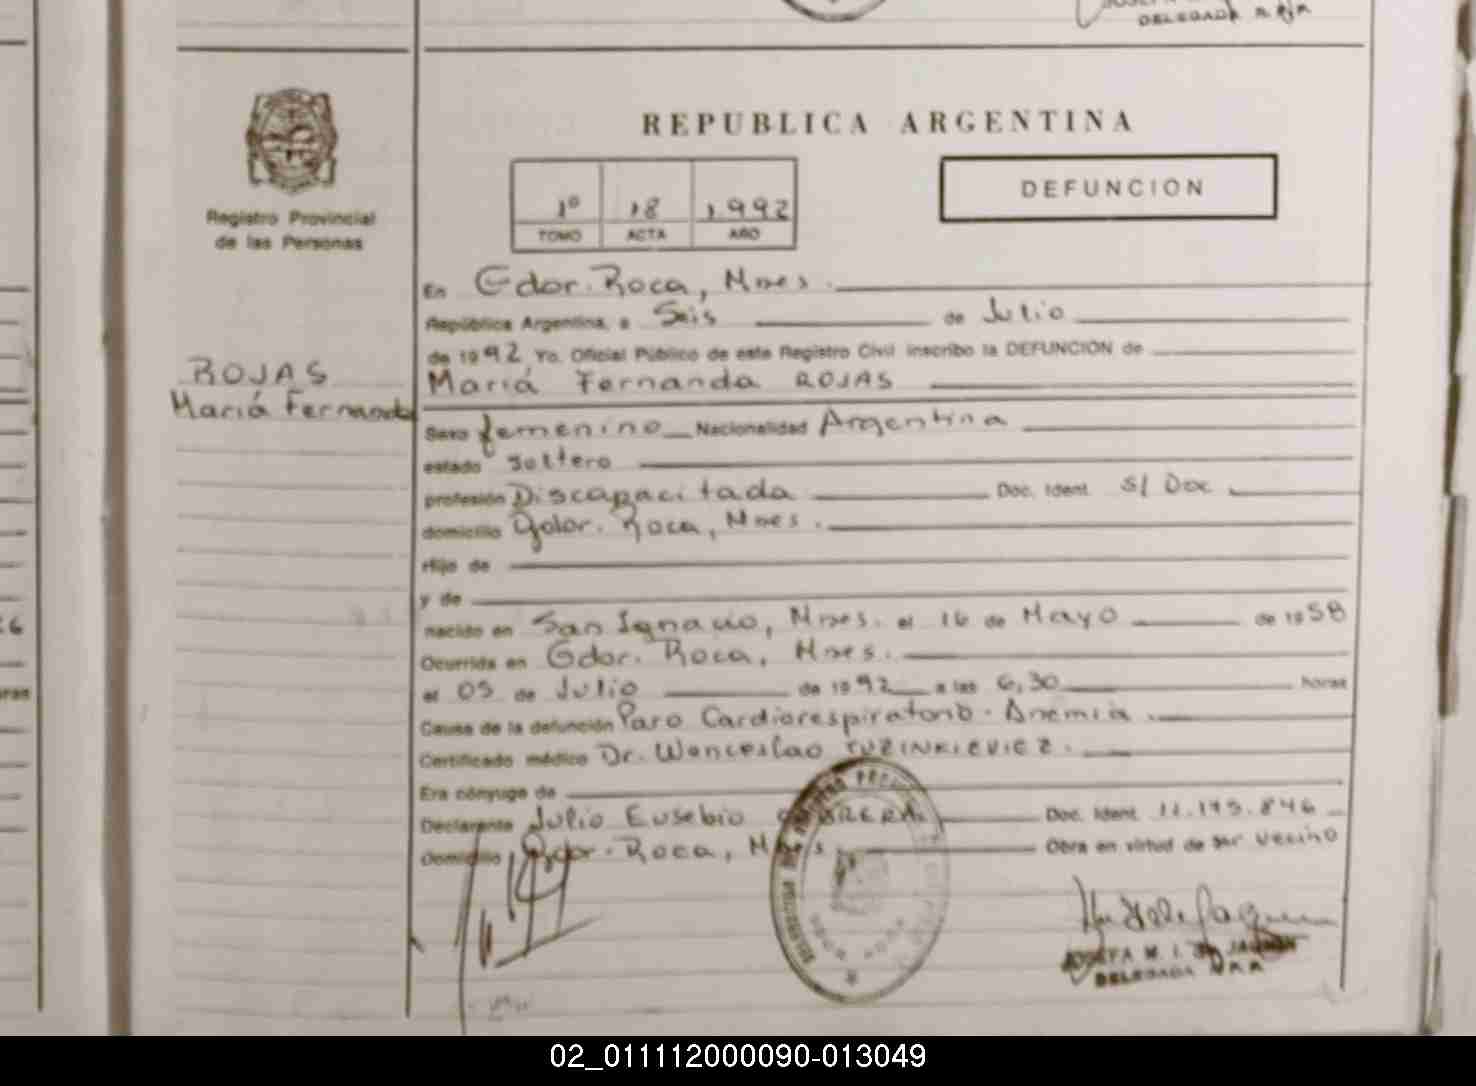 DELEGADA
REPUBLICA ARGENTINA
DEFUNCION
1º 18 1.992
TOMO ACTA AÑO
Registro Provincial
de las Personas
ROJAS
Mariá Fernanda
En Gdor. Roca, Mnes.
República Argentina, a Seis de Julio
de 1992 Yo. Oficial Público de este Registro Civil inscribo la DEFUNCION de
Mariá Fernanda ROJAS
Sexo femenino Nacionalidad Argentina
estado soltero
profesión Discapacitada Doc. Ident. S/ Doc
domicilio Gdor. Roca, Mnes.
Hijo de
y de
nacido en San Ignacio, Mnes. el 16 de Mayo de 1958
Ocurrida en Gdor. Roca, Mnes.
el 05 de Julio de 1992 a las 6,30 horas
Causa de la defunción Paro Cardiorespiratorio - Anemia.
Certificado médico Dr. Wenceslao TUZINKIEVIEZ.
Era cónyuge de
Declarante Julio Eusebio CABRERA Doc. Ident. 11.195.846
Domicilio Gdor. Roca, Mnes. Obra en virtud de ser vecino
JOSEFA M. I.
DELEGADA
02_011112000090-013049